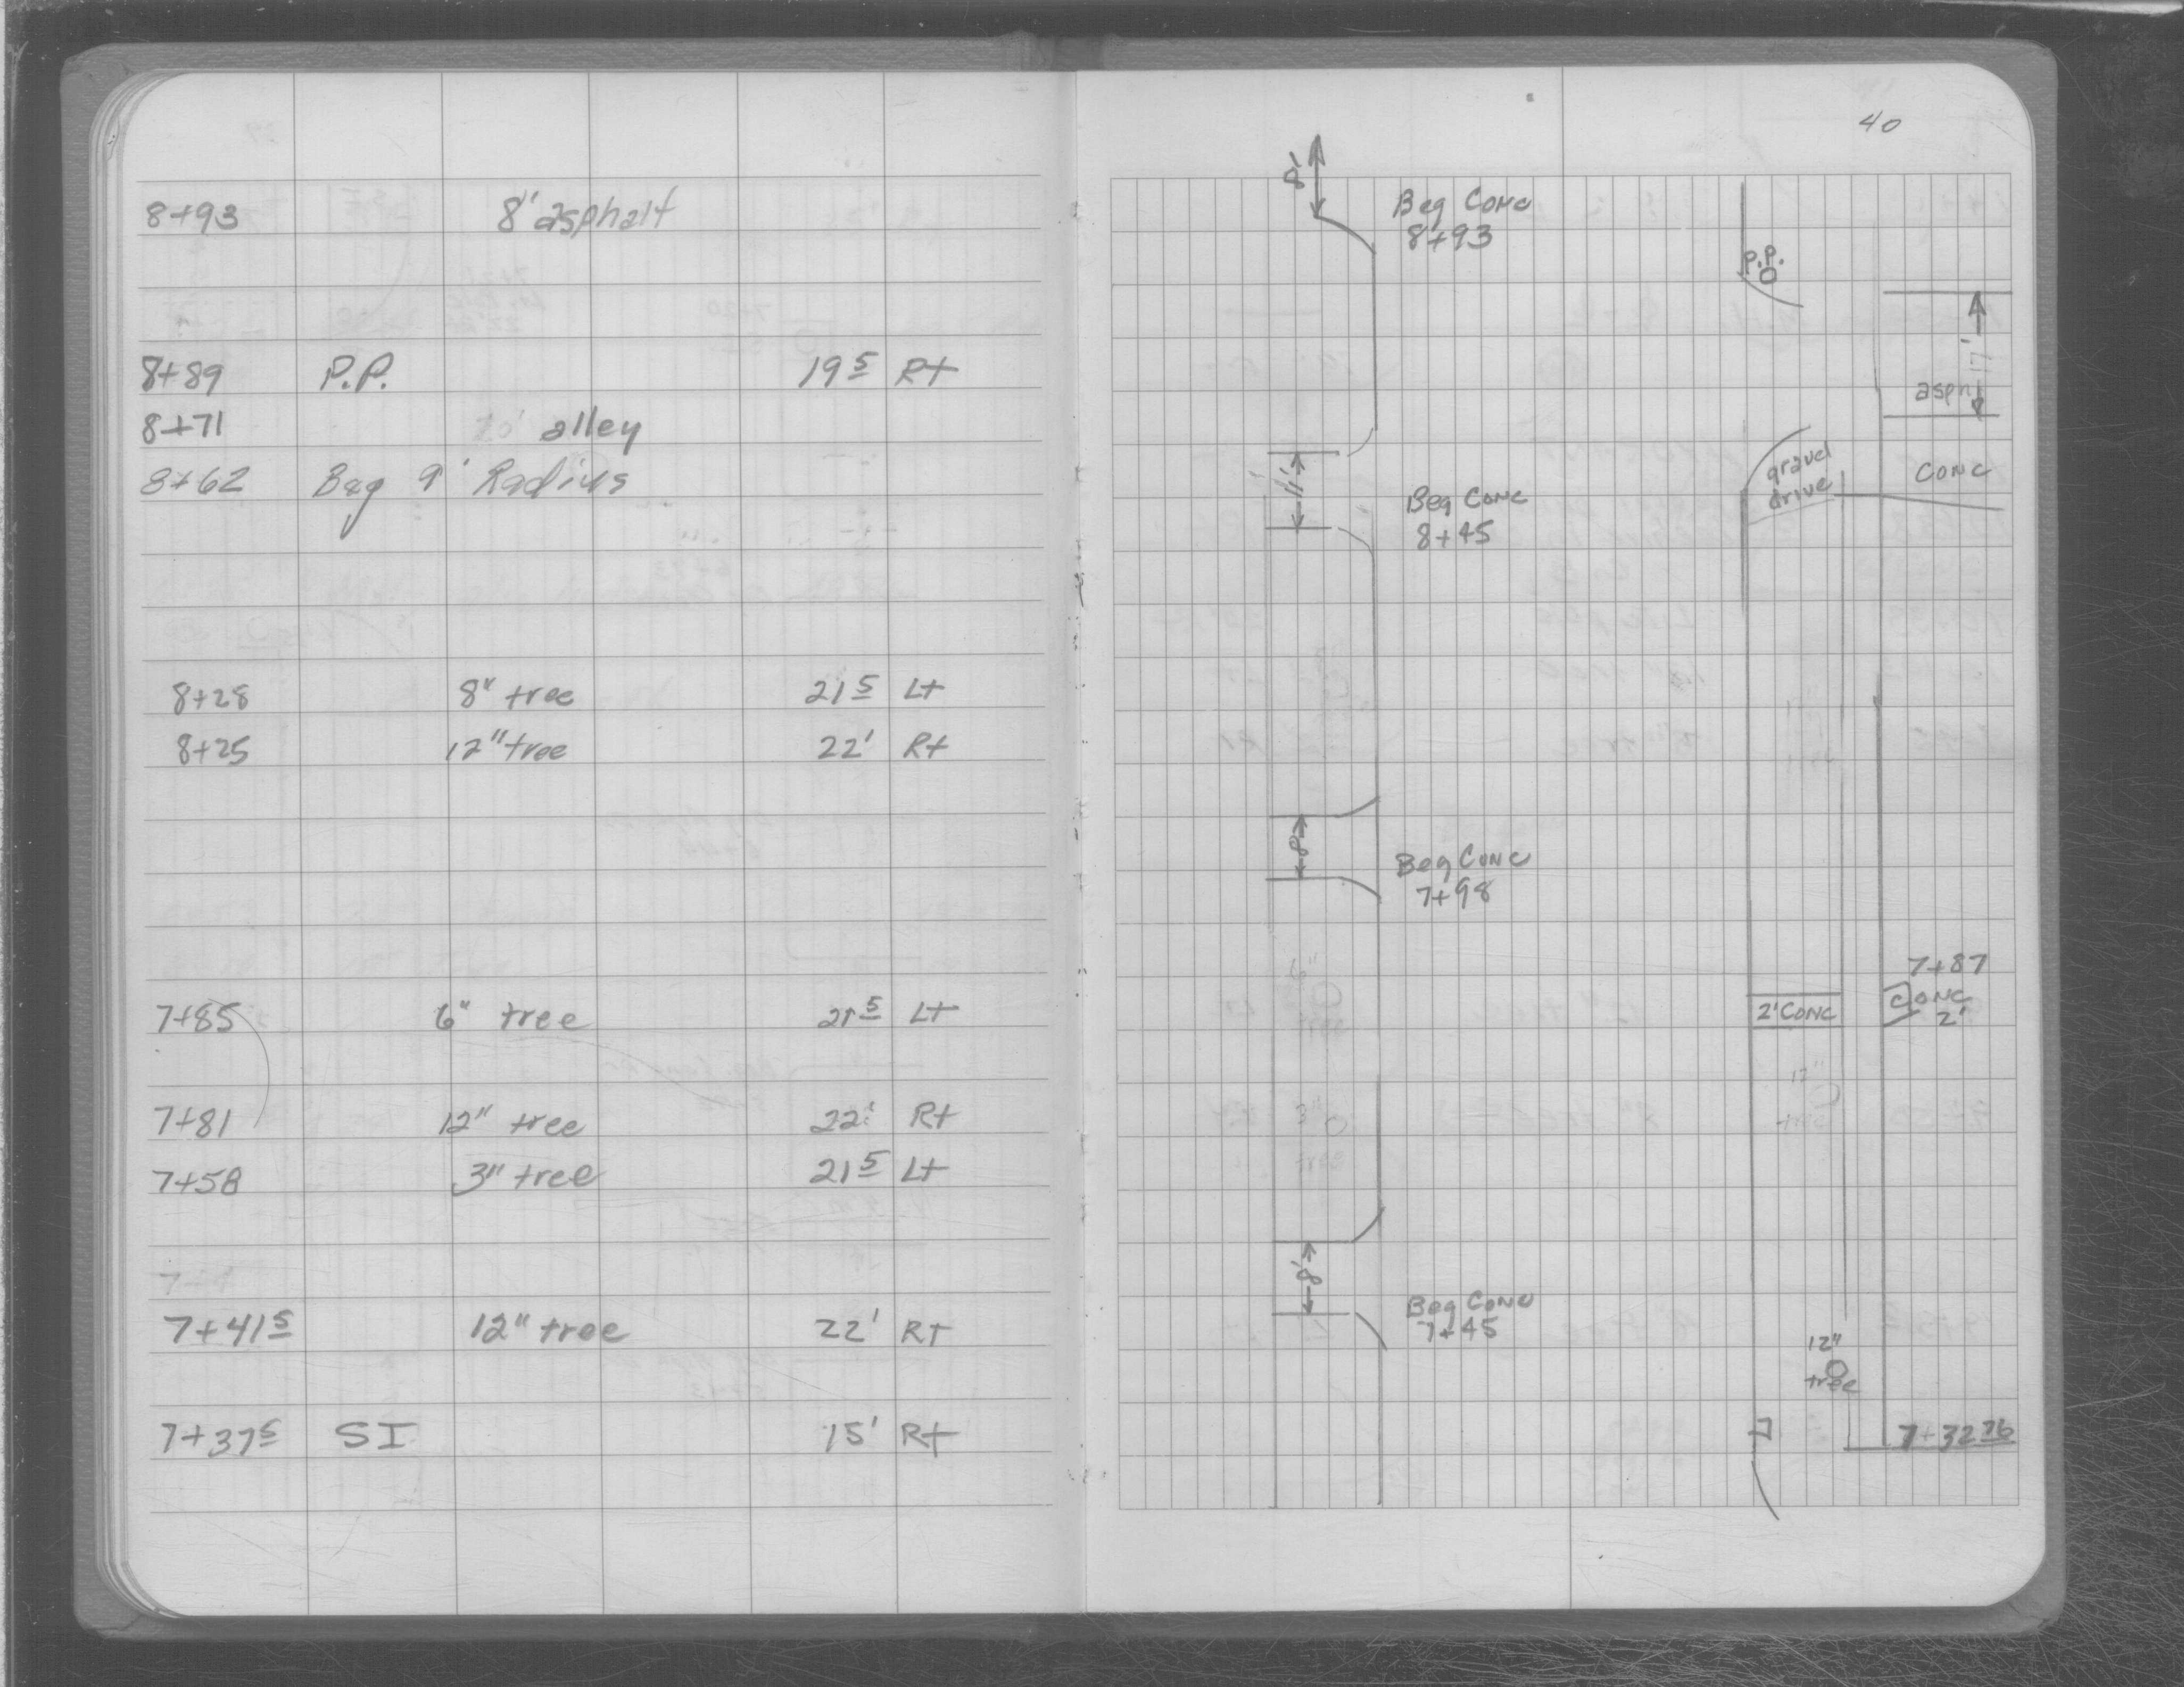 8+93 8' asphalt
8+89 P.P. 19 5 Rt
8+71 20' alley
8+62 Beg 9' Radius
8+28 8" tree 21 5 Lt
8+25 12" tree 22' Rt
7+85 6" tree 21 5 Lt
7+81 12" tree 22' Rt
7+58 3" tree 21 5 Lt
7+41 5 12" tree 22' Rt
7+37 5 SI 15' Rt
40
8'
Beg Conc
8+93
P.P.
17'
asph
gravel
drive
Conc
11'
Beg Conc
8+45
8'
Beg Conc
7+98
7+87
Conc
2'
2' Conc
6"
12"
3"
tree
8'
Beg Conc
7+45
12"
tree
7+32 76